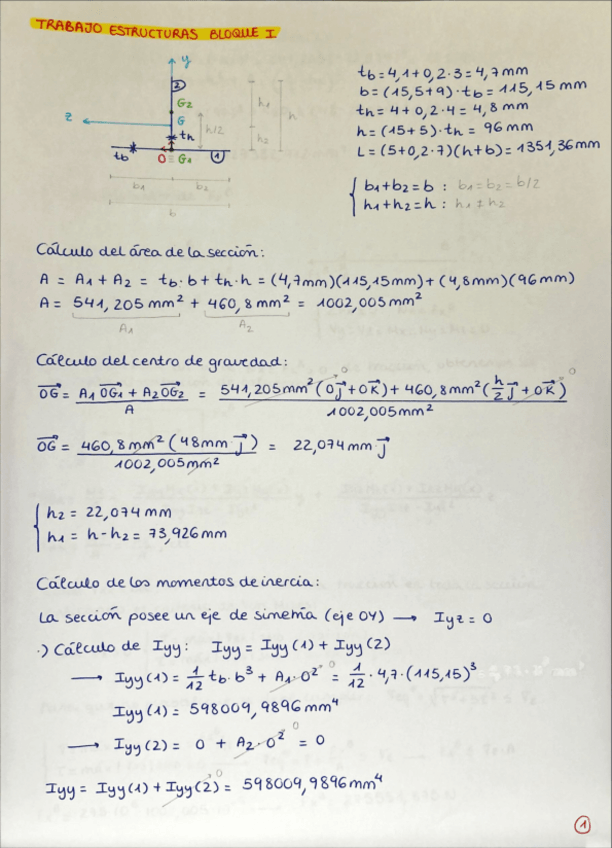 TRABAJO ESTRUCTURAS BLOQUE I
y
2
G2
z
G
h/2
h1
h
th
h2
tb
O ≡ G1
1
b1
b2
b
tb = 4,1 + 0,2·3 = 4,7 mm
b = (15,5+9)·tb = 115,15 mm
th = 4 + 0,2·4 = 4,8 mm
h = (15+5)·th = 96 mm
L = (5+0,2·7)(h+b) = 1351,36 mm
b1+b2 = b : b1 = b2 = b/2
h1+h2 = h : h1 ≠ h2
Cálculo del área de la sección:
A = A1 + A2 = tb·b + th·h = (4,7mm)(115,15mm) + (4,8mm)(96mm)
A = 541,205 mm² + 460,8 mm² = 1002,005 mm²
A1
A2
Cálculo del centro de gravedad:
OG = (A1 OG1 + A2 OG2) / A = (541,205mm² (0j + 0k) + 460,8mm² (h/2 j + 0k)) / 1002,005mm²
OG = (460,8 mm² (48mm j)) / 1002,005mm² = 22,074mm·j
h2 = 22,074 mm
h1 = h - h2 = 73,926mm
Cálculo de los momentos de inercia:
La sección posee un eje de simetría (eje OY) → Iyz = 0
·) Cálculo de Iyy: Iyy = Iyy(1) + Iyy(2)
→ Iyy(1) = 1/12 tb·b³ + A1·0² = 1/12 · 4,7·(115,15)³
Iyy(1) = 598009,9896mm⁴
→ Iyy(2) = 0 + A2·0² = 0
Iyy = Iyy(1) + Iyy(2) = 598009,9896mm⁴
1